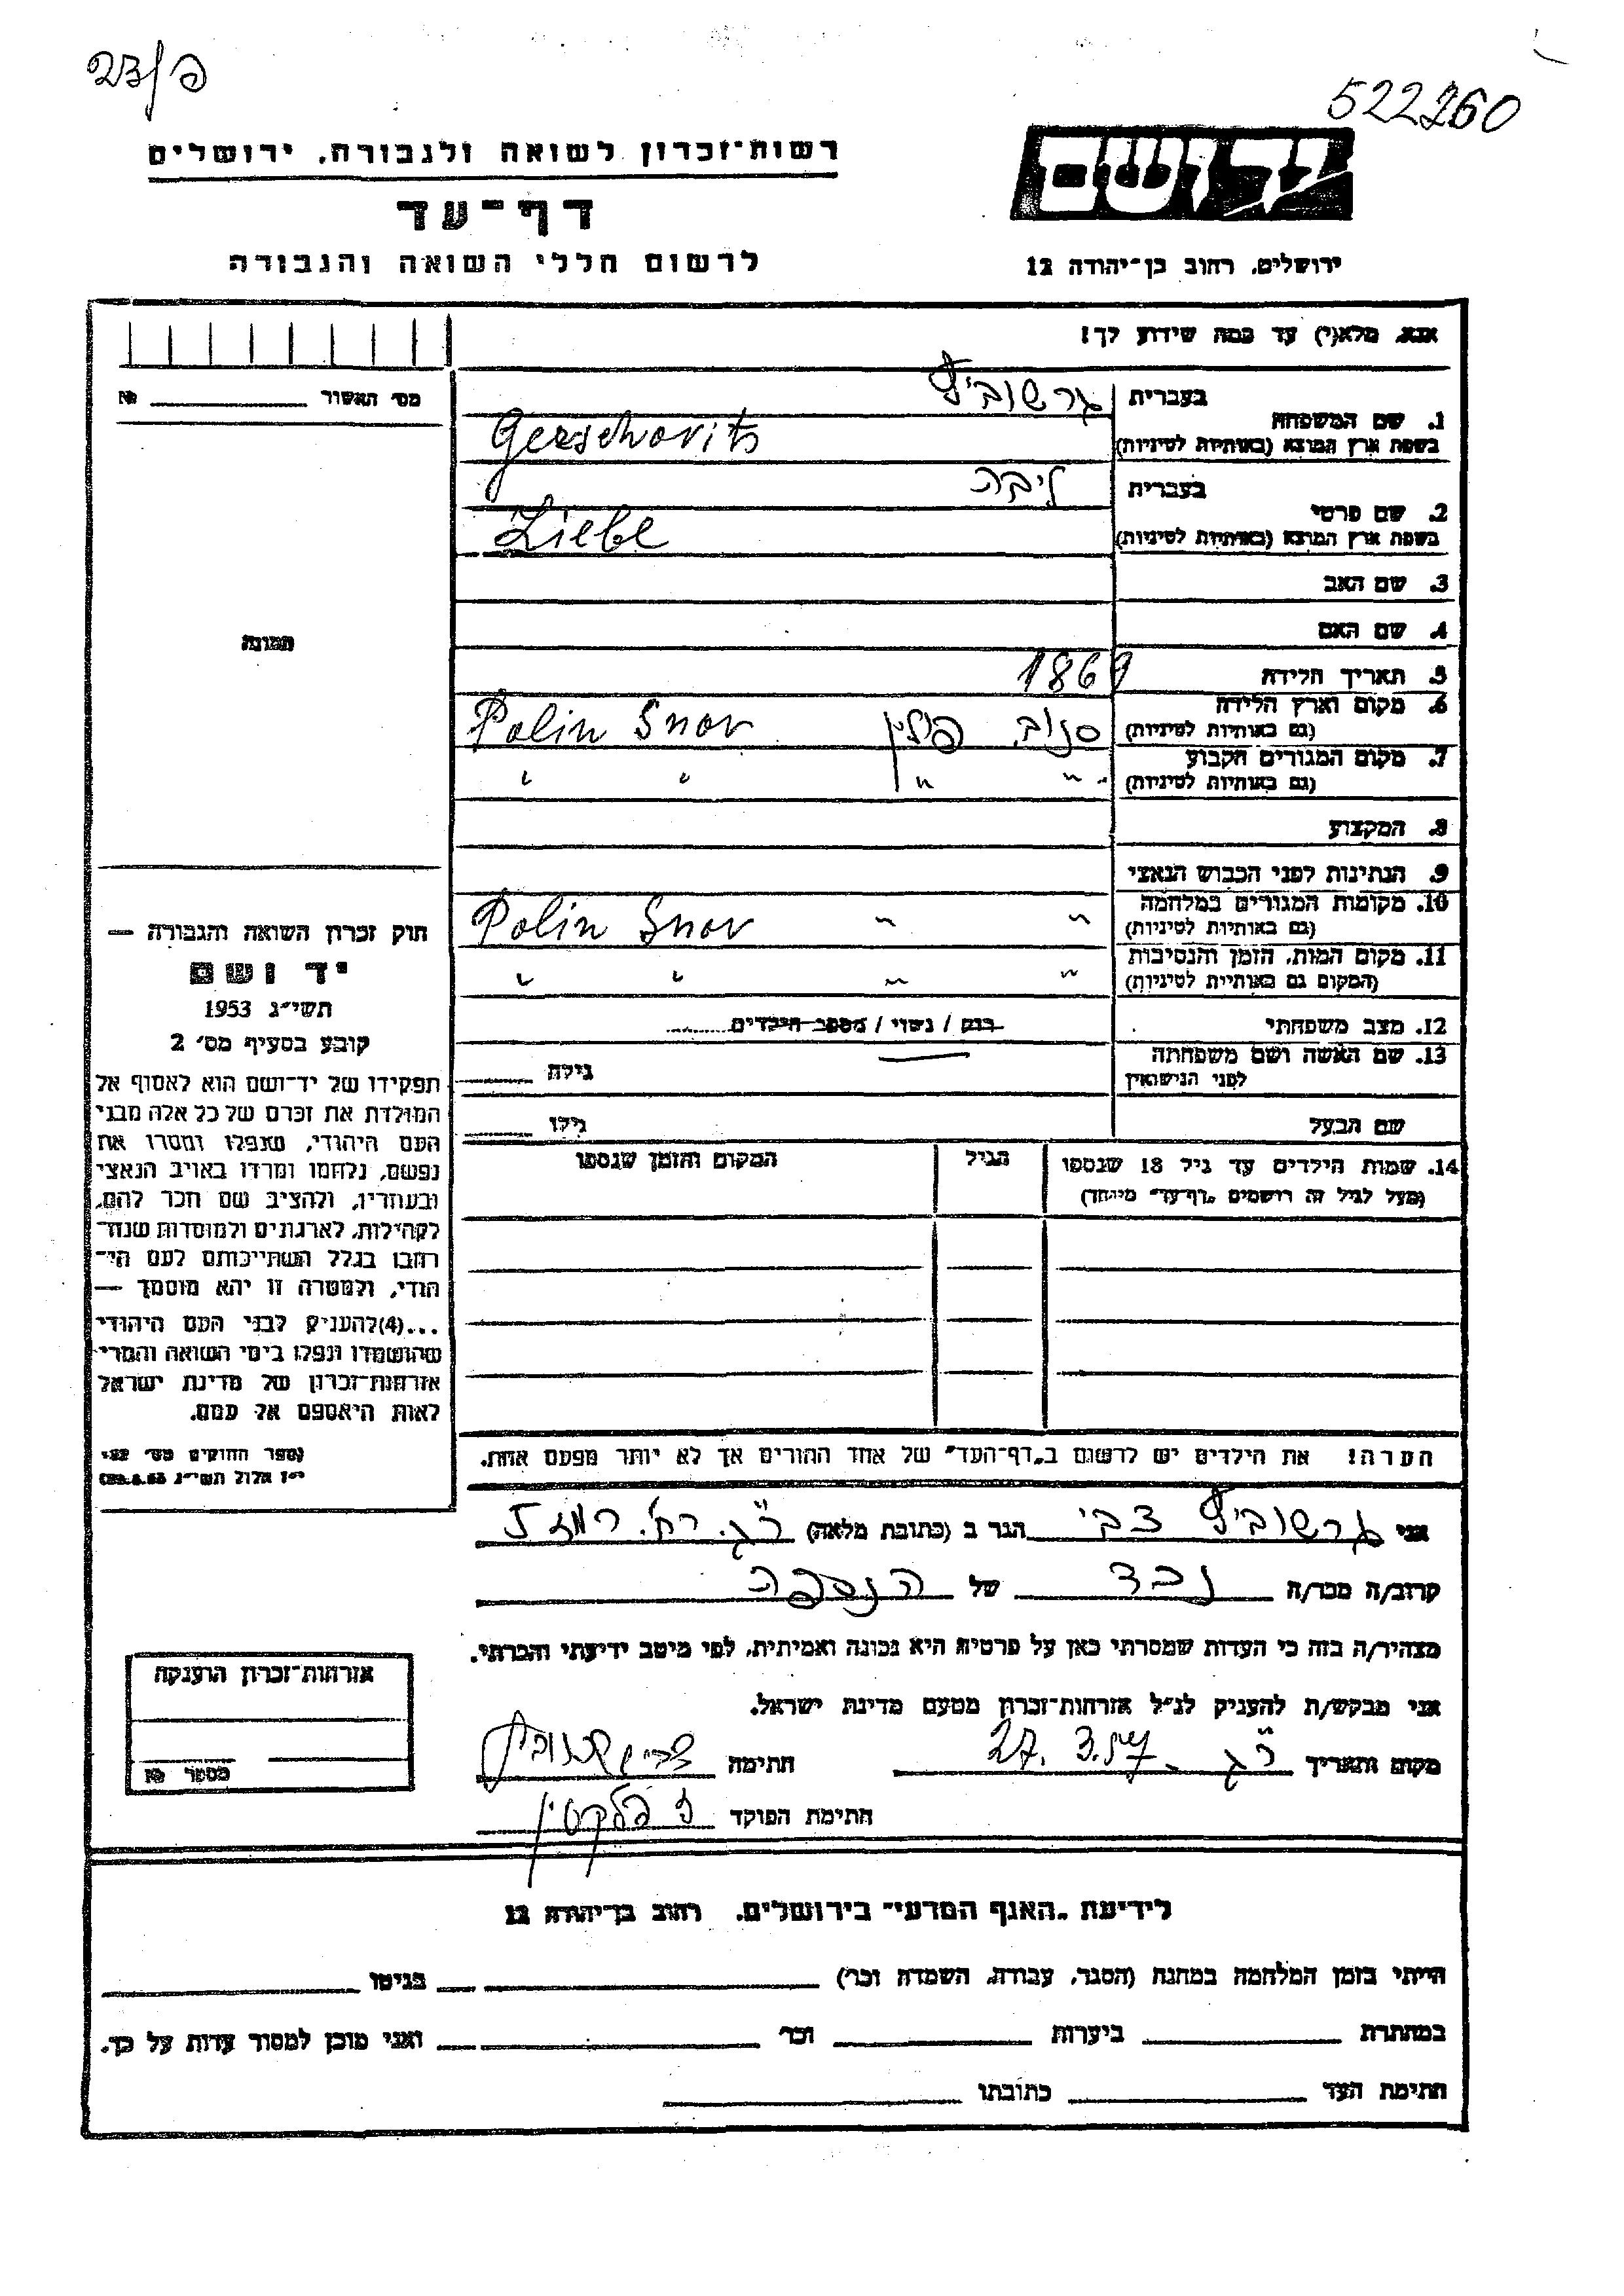 23/פ
522260
רשות־זכרון לשואה ולגבורה, ירושלים
דף־עד
לרשום חללי השואה והגבורה
יד ושם
ירושלים, רחוב בן־יהודה 12
אנא, מלא(י) עד כמה שידוע לך!
מס׳ האשור № ________
1. שם המשפחה
בעברית גרשוביץ
בשפת ארץ המוצא (באותיות לטיניות) Gerschovits
2. שם פרטי
בעברית ליבה
בשפת ארץ המוצא (באותיות לטיניות) Liebe
3. שם האב
4. שם האם
5. תאריך הלידה 1869
6. מקום וארץ הלידה (גם באותיות לטיניות) סנוב פולין Polin Snov
7. מקום המגורים הקבוע (גם באותיות לטיניות) " " " "
8. המקצוע
9. הנתינות לפני הכבוש הנאצי
10. מקומות המגורים במלחמה (גם באותיות לטיניות) " " Polin Snov
11. מקום המות, הזמן והנסיבות (המקום גם באותיות לטיניות) " " " "
12. מצב משפחתי רווק / נשוי / מספר הילדים
13. שם האשה ושם משפחתה לפני הנישואין גילה
שם הבעל גילו
14. שמות הילדים עד גיל 18 שנספו
(מעל לגיל זה רושמים „דף־עד״ מיוחד)
הגיל
המקום והזמן שנספו
תמונה
חוק זכרון השואה והגבורה —
יד ושם
תשי״ג 1953
קובע בסעיף מס׳ 2
תפקידו של יד־ושם הוא לאסוף אל
המולדת את זכרם של כל אלה מבני
העם היהודי, שנפלו ומסרו את
נפשם, נלחמו ומרדו באויב הנאצי
ובעוזריו, ולהציב שם וזכר להם,
לקהילות, לארגונים ולמוסדות שנח־
רבו בגלל השתייכותם לעם הי־
הודי, ולמטרה זו יהא מוסמך —
...(4) להעניק לבני העם היהודי
שהושמדו ונפלו בימי השואה והמרי
אזרחות־זכרון של מדינת ישראל
לאות היאספם אל עמם.
(ספר החוקים מס׳ 132
י״ז אלול תשי״ג 28.8.53)
הערה! את הילדים יש לרשום ב„דף־העד״ של אחד ההורים אך לא יותר מפעם אחת.
אני גרשוביץ צבי הגר ב (כתובת מלאה) ר״ג. רח׳.
קרוב/ה מכר/ה נכד של הנספה
מצהיר/ה בזה כי העדות שמסרתי כאן על פרטיה היא נכונה ואמיתית, לפי מיטב ידיעתי והכרתי.
אני מבקש/ת להעניק לנ״ל אזרחות־זכרון מטעם מדינת ישראל.
מקום ותאריך ר״ג 27.3. חתימה צבי גרשוביץ
חתימת הפוקד
אזרחות־זכרון הוענקה
מספר №
לידיעת „האגף המדעי״ בירושלים, רחוב בן־יהודה 12
הייתי בזמן המלחמה במחנה (הסגר, עבודה, השמדה וכו׳) ________ בגיטו ________
במחתרת ________ ביערות ________ וכו׳ ________ ואני מוכן למסור עדות על כך.
חתימת העד ________ כתובתו ________